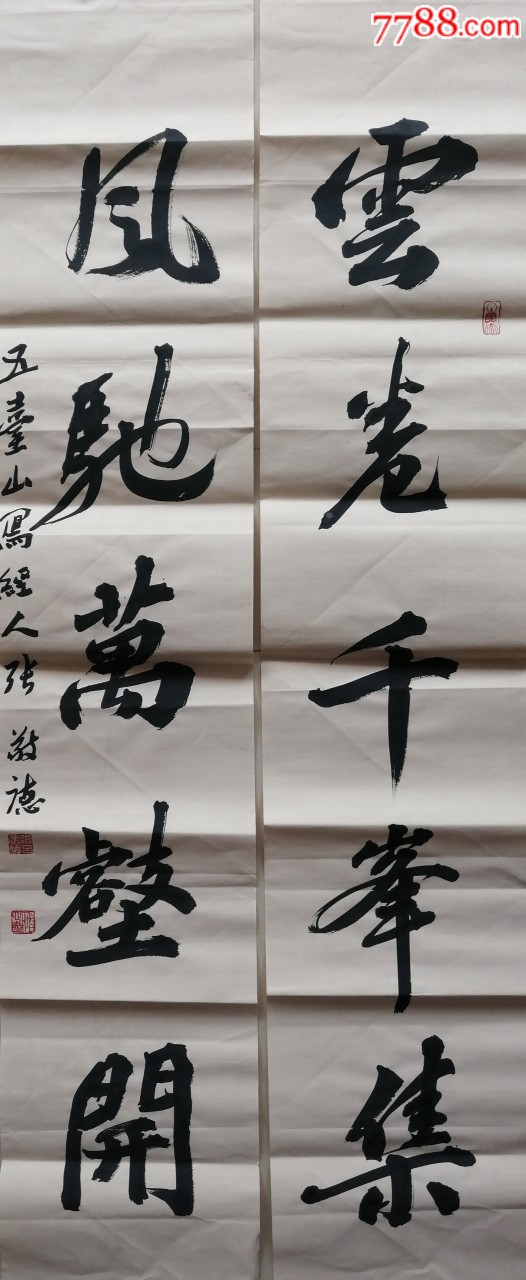 7788.com
雲卷千峯集
風馳萬壑開
五臺山寫經人張敬德